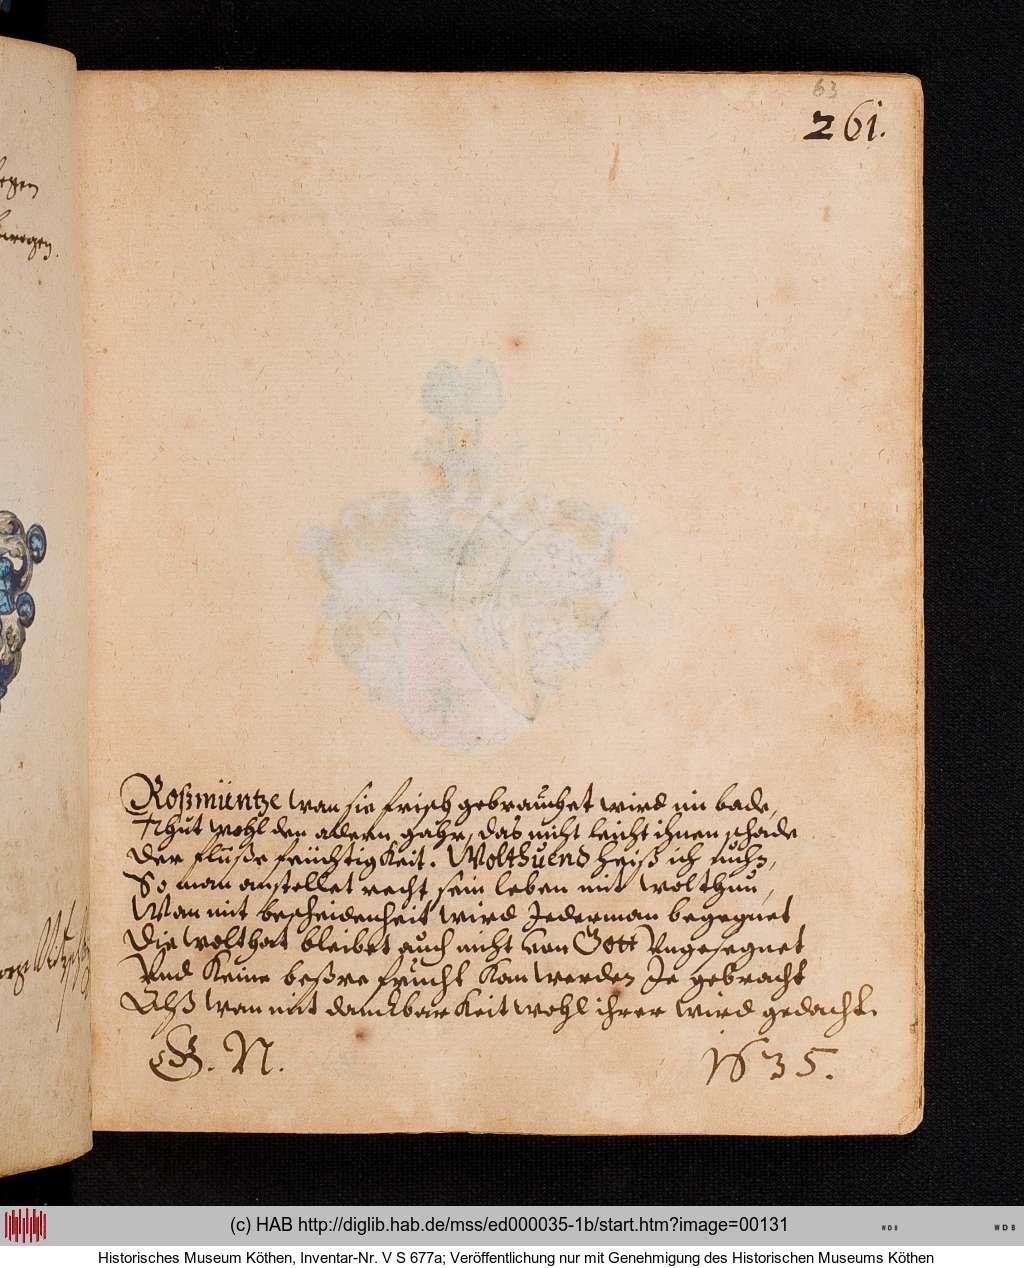 63
261.
egen
Roßmüntze wan sie frisch gebrauchet wird im bade,
Thut wohl den adern gahr, das nicht leicht ihnen schade
Der flüße feüchtigkeit. Wolthuend heiß ich nuhn,
So man anstellet recht sein leben mit wolthun,
Wan mit bescheidenheit wird Jederman begegnet
Die wolthat bleibet auch nicht von Gott Vngesegnet
Vnd keine beßre frucht kan werden Je gebracht
Alß wan mit danckbarkeit wohl ihrer wird gedacht.
G. N. 1635.
(c) HAB http://diglib.hab.de/mss/ed000035-1b/start.htm?image=00131
W D B
W D B
Historisches Museum Köthen, Inventar-Nr. V S 677a; Veröffentlichung nur mit Genehmigung des Historischen Museums Köthen